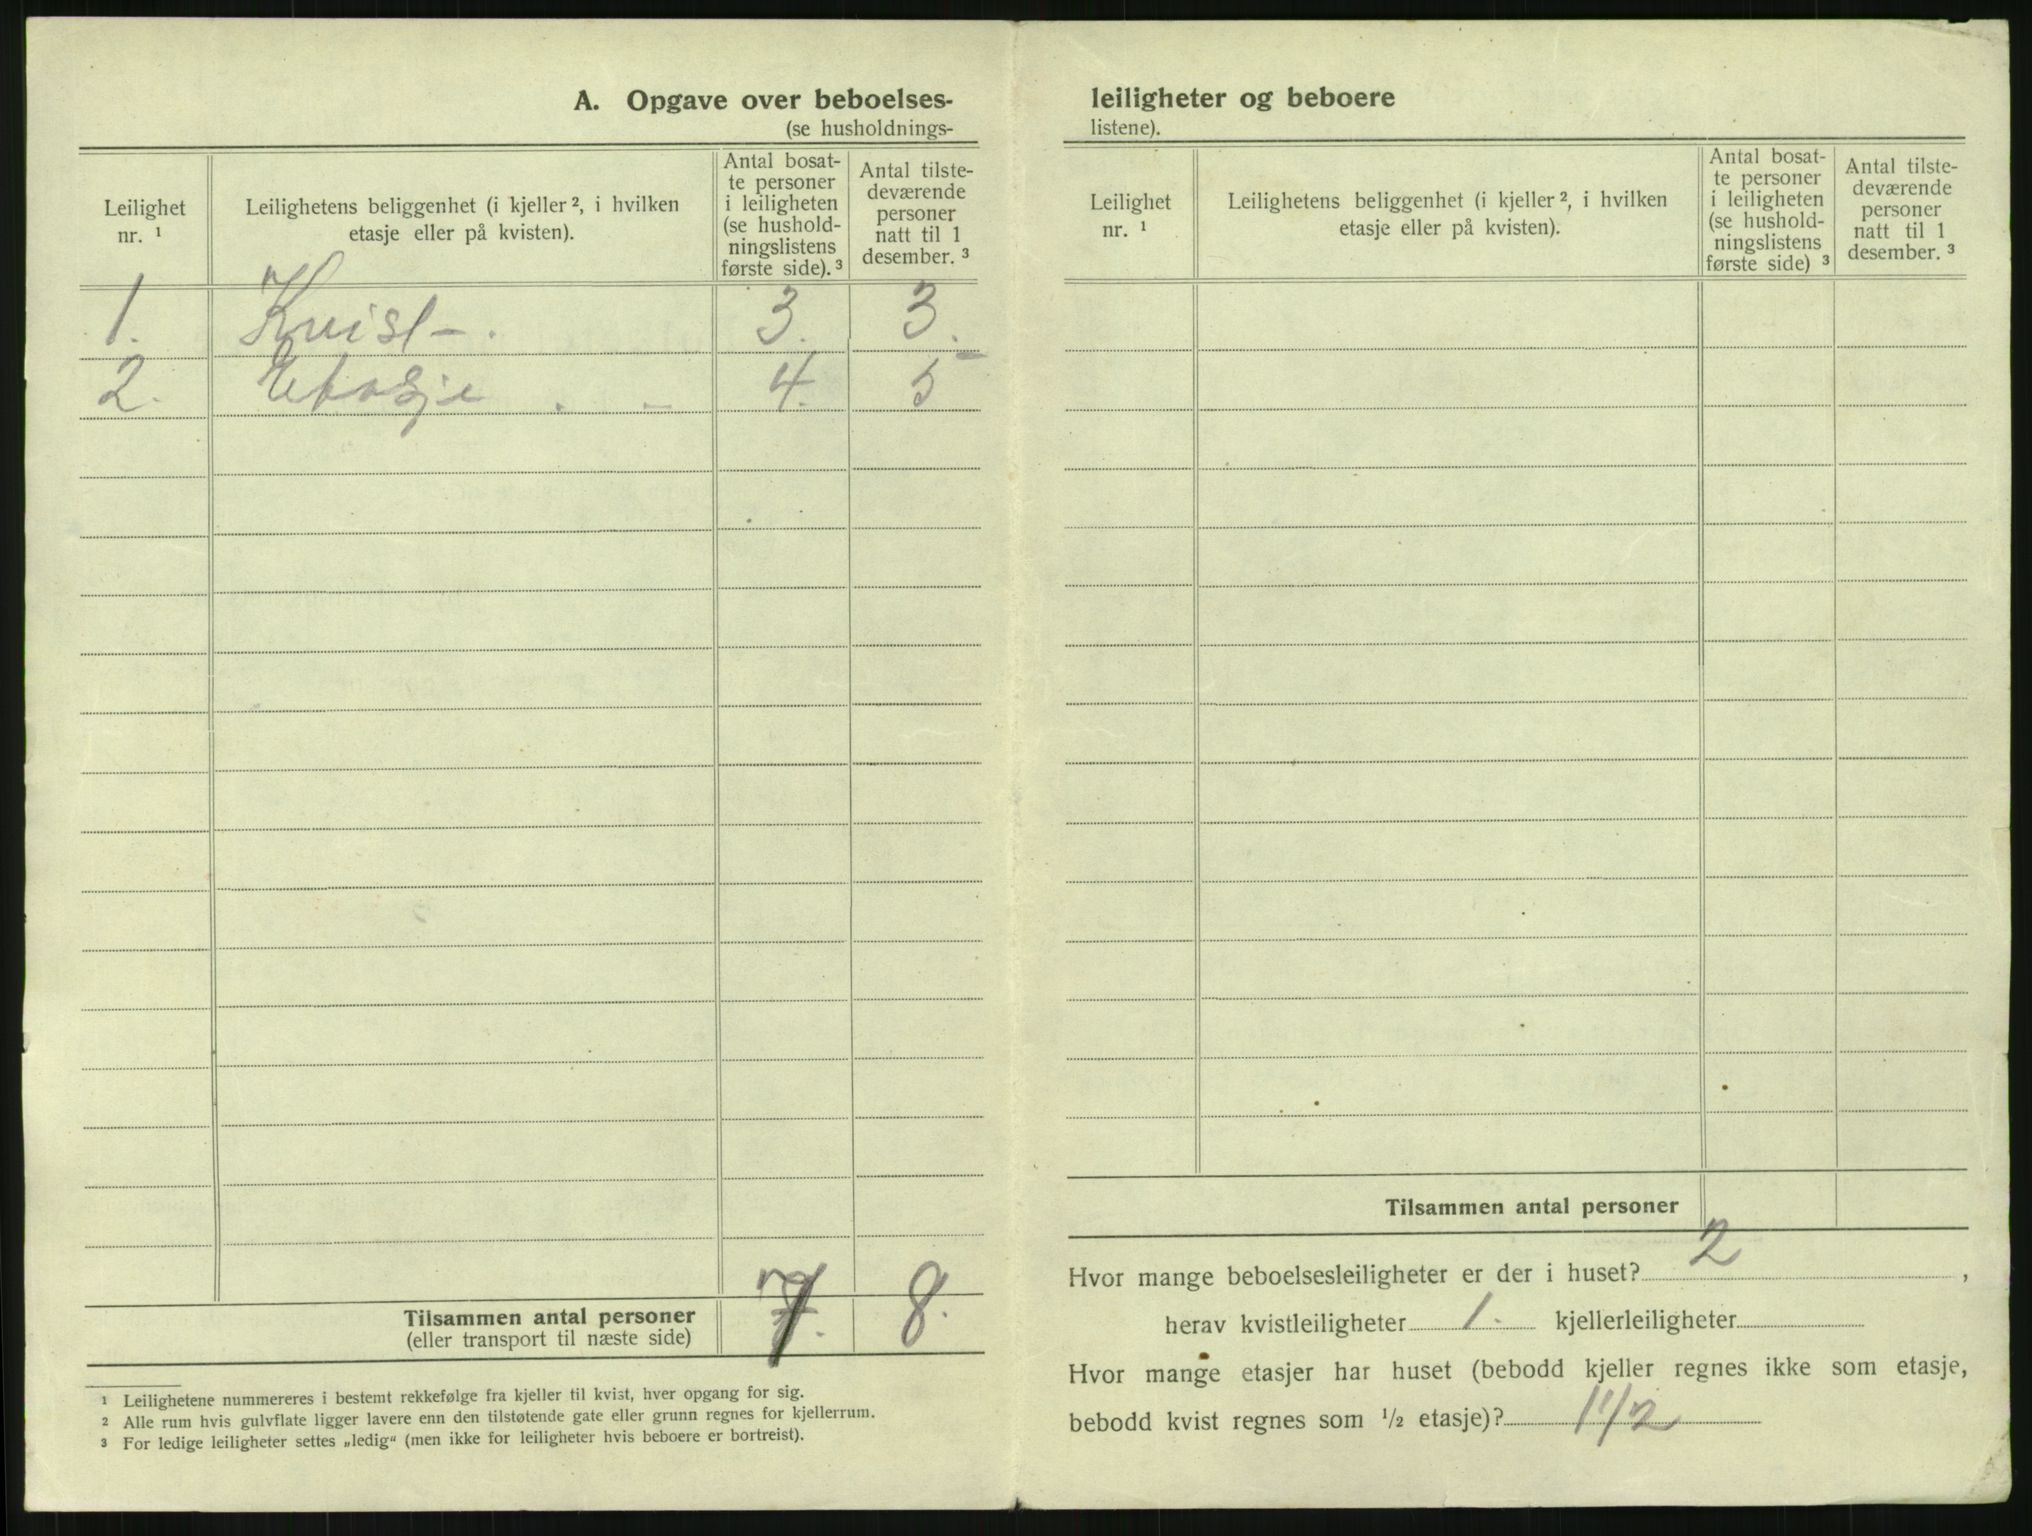 A. Opgave over beboelses-
(se husholdnings-
Leilighet nr. ¹
Leilighetens beliggenhet (i kjeller ², i hvilken etasje eller på kvisten).
Antal bosat-
te personer
i leiligheten
(se hushold-
ningslistens
første side). ³
Antal tilste-
deværende
personer
natt til 1
desember. ³
1. Kvist - . 3. 3.
2. Etasje . - 4. 5
Tilsammen antal personer 7. 8.
(eller transport til næste side)
¹ Leilighetene nummereres i bestemt rekkefølge fra kjeller til kvist, hver opgang for sig.
² Alle rum hvis gulvflate ligger lavere enn den tilstøtende gate eller grunn regnes for kjellerrum.
³ For ledige leiligheter settes „ledig“ (men ikke for leiligheter hvis beboere er bortreist).
leiligheter og beboere
listene).
Leilighet nr. ¹
Leilighetens beliggenhet (i kjeller ², i hvilken etasje eller på kvisten).
Antal bosat-
te personer
i leiligheten
(se hushold-
ningslistens
første side) ³
Antal tilste-
deværende
personer
natt til 1
desember. ³
Tilsammen antal personer
Hvor mange beboelsesleiligheter er der i huset? 2 ,
herav kvistleiligheter 1. kjellerleiligheter
Hvor mange etasjer har huset (bebodd kjeller regnes ikke som etasje,
bebodd kvist regnes som ½ etasje)? 1 1/2